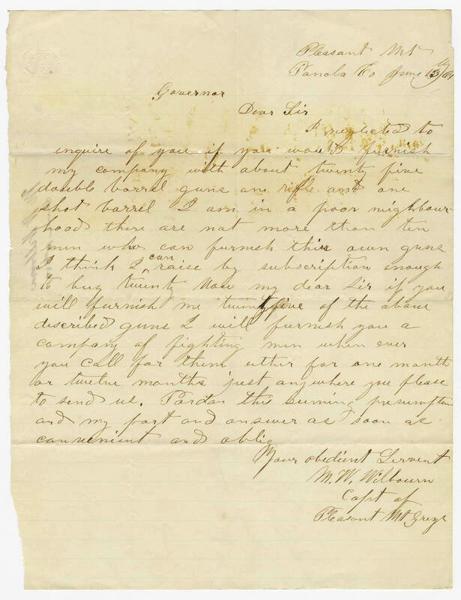 Pleasant Mt
Panola Co June 13th/61
Governor
Dear Sir
I neglected to
enquire of you if you would furnish
my company with about twenty five
double barrel guns one rifle and one
shot barrel I am in a poor neighbour-
hood there are not more than ten
men who can furnish their own guns
I think I can raise by subscription enough
to buy twenty Now my dear Sir if you
will furnish me twentyfive of the above
described guns I will furnish you a
company of fighting men when ever
you call for them either for one month
or twelve months just anywhere you please
to send us. Pardon this seeming presumption
and my part and answer as soon as
convenient and oblig
Your obedient Servent
M. W. Wilbourn
Capt of
Pleasant Mt Greys